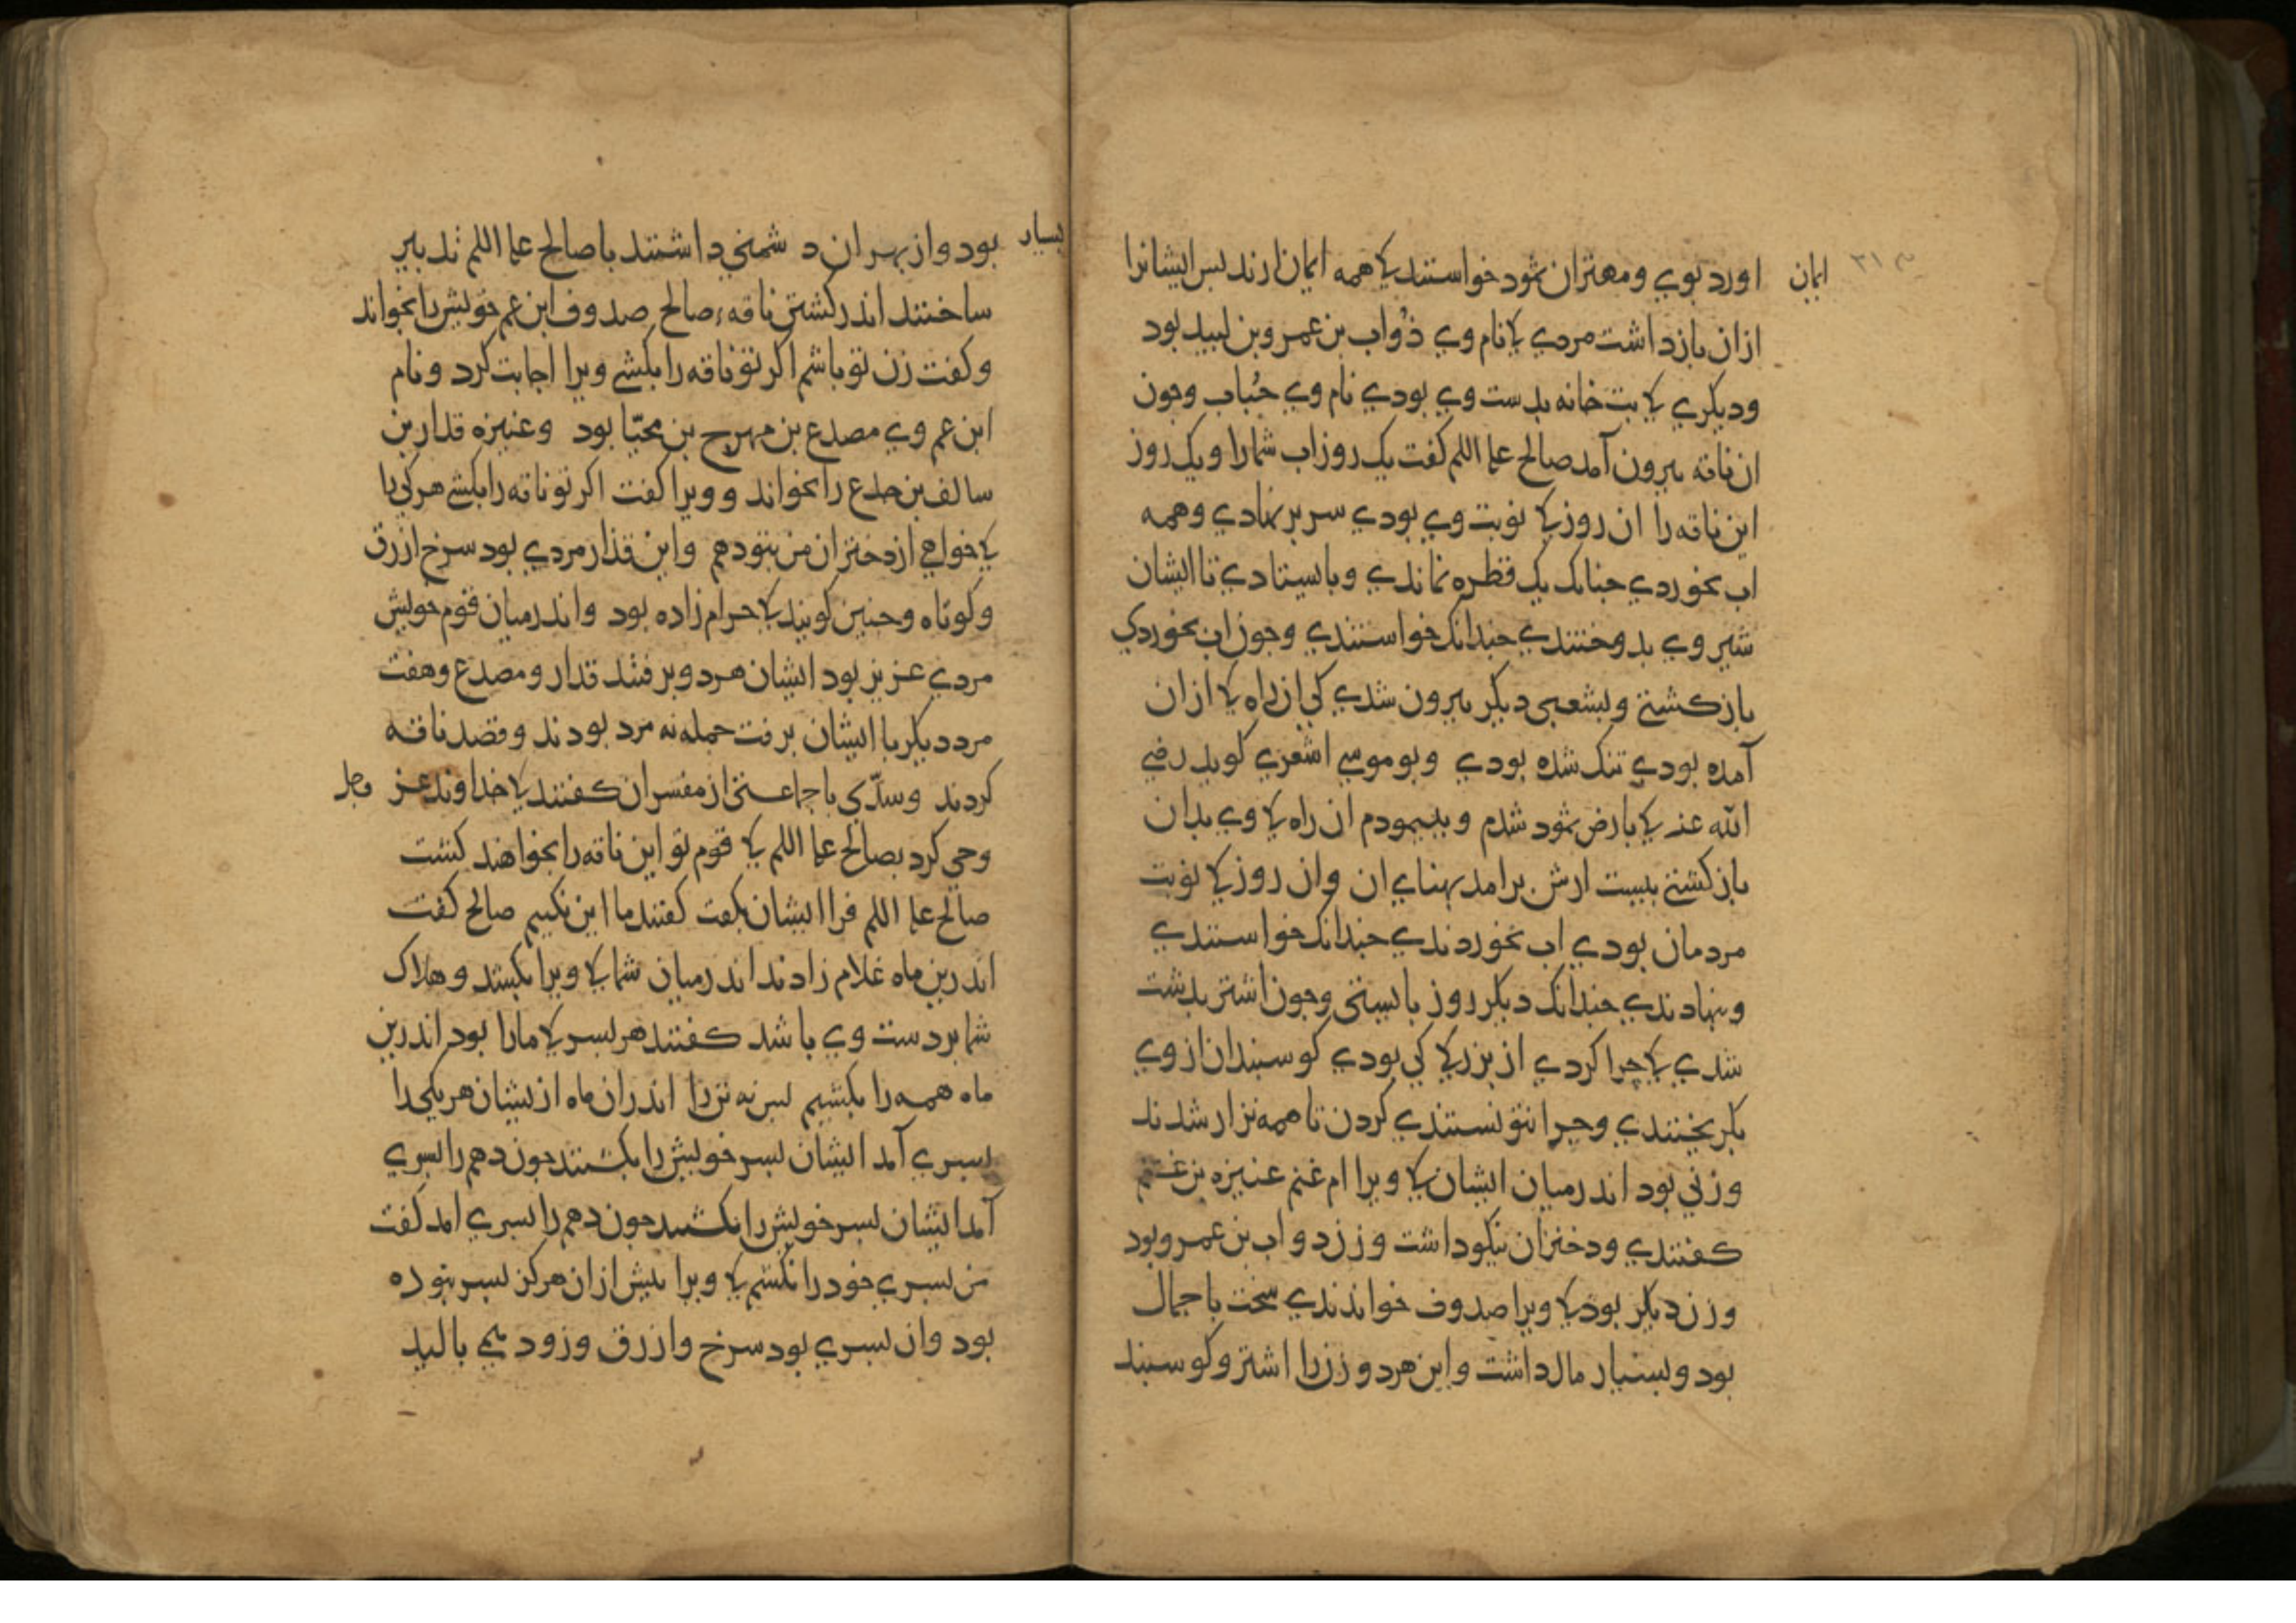 ایمان اورد بوی و مهتران ثمود خواستند کی همه ایمان ارند بس ایشانرا
از ان بازداشت مردی کی نام وی ذؤاب بن عمرو بن لبید بود
ودیکری کی بت خانه بدست وی بودی نام وی حُباب وجون
ان ناقه بیرون آمد صالح علیه السلم کفت یک روز اب شمارا و یک روز
این ناقه را ان روز کی نوبت وی بودی سر بر نهادی و همه
اب بخوردی جنانک یک قطره نماندی وبایستادی تا ایشان
شیر وی بدوختندی جندانک خواستندی وجون اب بخوردی
باز کشتی و بشعبی دیکر بیرون شدی کی ازان راه کی از ان
آمده بودی تنک شده بودی وبو موسی اشعری کوید رضی
الله عنه کی بارض ثمود شدم و بپیمودم ان راه کی وی بدان
باز کشتی بیست ارش برامد پهنای ان وان روز کی نوبت
مردمان بودی اب بخوردندی جندانک خواستندی
وبنهادندی جندانک دیکر روز بایستی وجون اشتر بدشت
شدی کی چرا کردی از بزرکی کی بودی کوسبندان از وی
بکریختندی وچرا نتونستندی کردن تا همه نزار شدند
وزنی بود اندر میان ایشان کی ویرا ام غنم عنیزه بن غنم
کفتندی ودختران نیکو داشت وزن دواب بن عمرو بود
وزن دیکر بود کی ویرا صدوف خواندندی سخت با جمال
بود وبسیار مال داشت واین هر دو زن را اشتر وکوسبند
بسیار بود واز بهر ان دشمنی داشتند با صالح علیه السلم تدبیر
ساختند اندر کشتن ناقه صالح صدوف ابن عم خویش را بخواند
وکفت زن تو باشم اکر تو ناقه را بکشی ویرا اجابت کرد ونام
ابن عم وی مصدع بن مهرج بن محیّا بود وعنیزه قدار بن
سالف بن جدع را بخواند و ویرا کفت اکر تو ناقه را بکشی هر کی را
کی خواهی از دختران من بتو دهم واین قذار مردی بود سرخ ازرق
وکوتاه وجنین کویند کی حرام زاده بود واندر میان قوم خویش
مردی عزیز بود ایشان هر دو برفتند قدار و مصدع وهفت
مرد دیکر با ایشان برفت جمله نه مرد بودند وقصد ناقه
کردند وسدّی با جماعتی از مفسران کفتند کی خداوند عز وجل
وحی کرد بصالح علیه السلم کی قوم تو این ناقه را بخواهند کشت
صالح علیه السلم فرا ایشان بکفت کفتند ما این نکنیم صالح کفت
اندرین ماه غلام زادند اندر میان شما کی ویرا بکشد وهلاک
شما بر دست وی باشد کفتند هر بسر کی مارا بود اندرین
ماه همه را بکشیم بس نه تن را اندران ماه از یشان هر یکی را
بسری آمد ایشان بسر خویش را بکشتند جون دهم را بسری
آمد ایشان بسر خویش را بکشتند جون دهم را بسری امد کفت
من بسری خود را نکشم کی ویرا بیش از ان هرکز بسر نبوده
بود وان بسری بود سرخ وازرق وزود می بالید